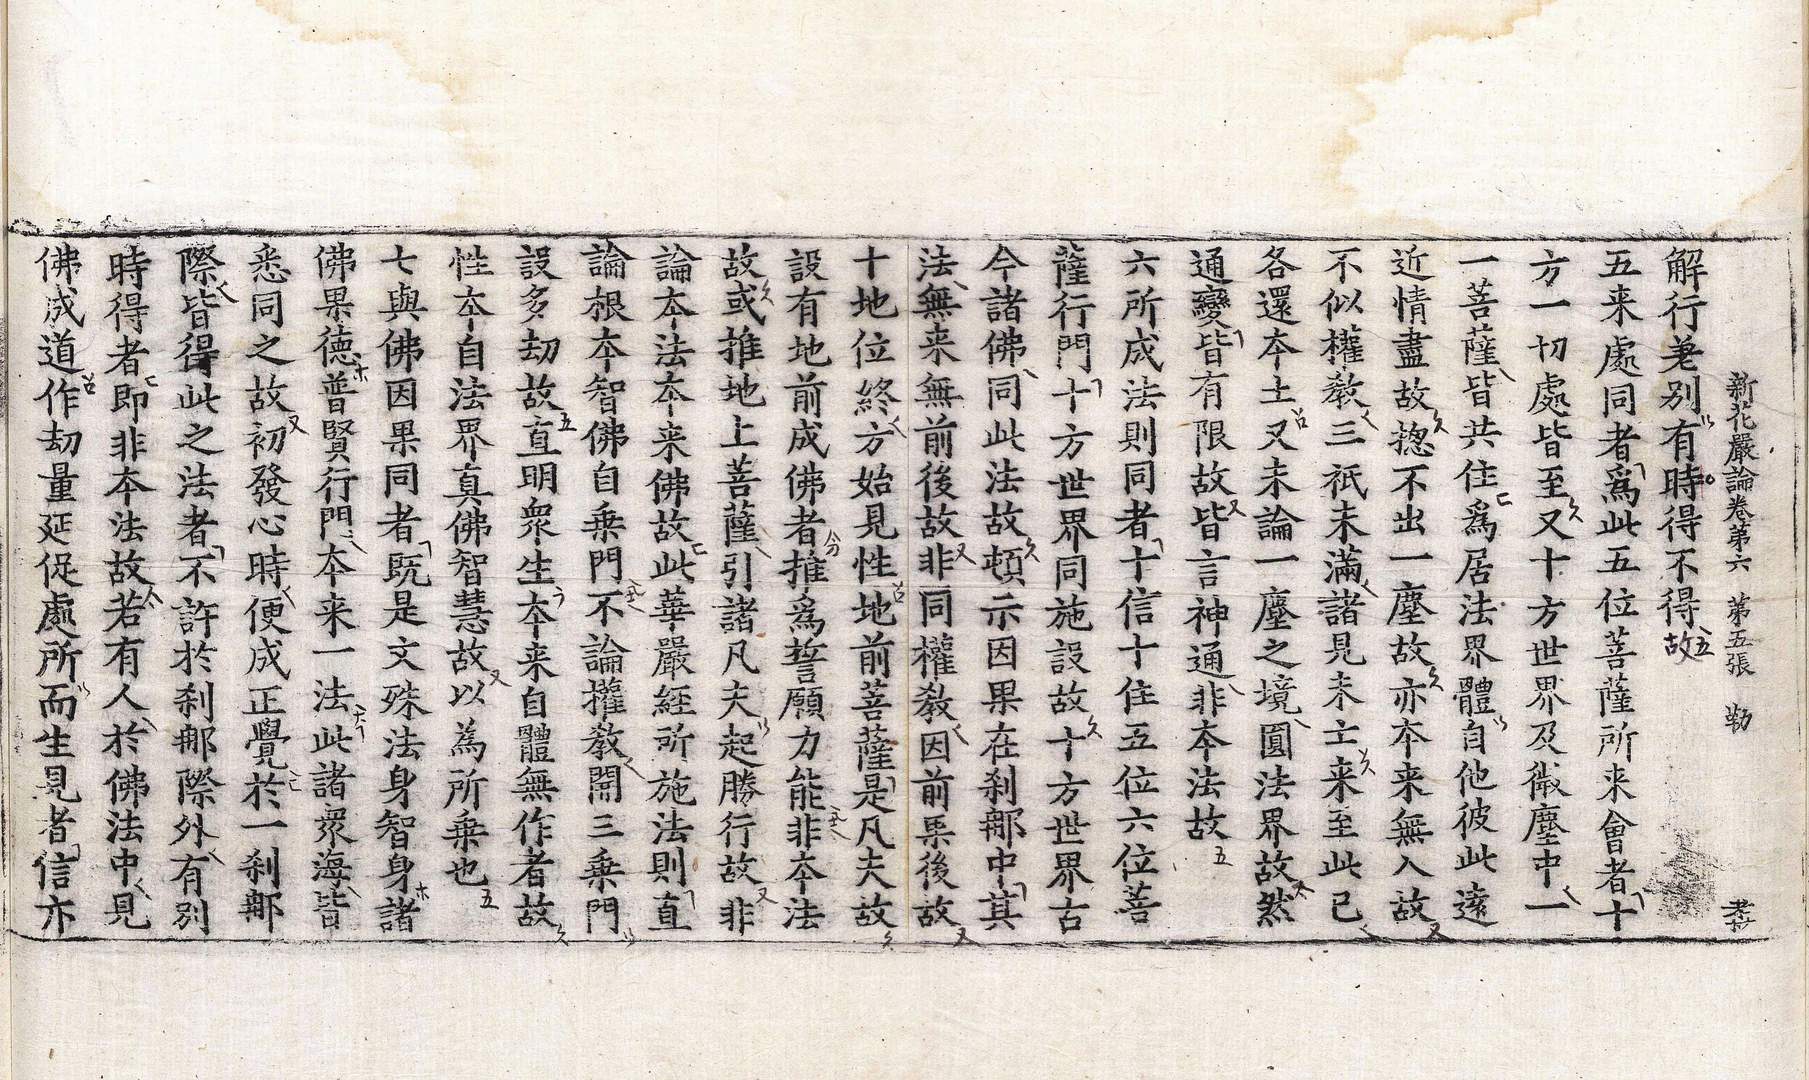 新花嚴論卷第六 第五張 勒
解行差別有時得不得故
五来處同者爲此五位菩薩所来會者十
方一切處皆至又十方世界及微塵中一
一菩薩皆共住爲居法界體自他彼此遠
近情盡故揔不出一塵故亦本来無入故
不似權教三祇未滿諸見未亡来至此已
各還本土又未論一塵之境圓法界故然
通變皆有限故皆言神通非本法故
六所成法則同者十信十住五位六位菩
薩行門十方世界同施設故十方世界古
今諸佛同此法故頓示因果在刹郍中其
法無来無前後故非同權教因前果後故
十地位終方始見性地前菩薩是凡夫故
設有地前成佛者推爲誓願力能非本法
故或推地上菩薩引諸凡夫起勝行故非
論本法本来佛故此華嚴經所施法則直
論根本智佛自乗門不論權教開三乗門
設多劫故直明衆生本来自體無作者故
性本自法界真佛智慧故以為所乗也
七與佛因果同者旣是文殊法身智身諸
佛果德普賢行門本来一法此諸衆海皆
悉同之故初發心時便成正覺於一刹郍
際皆得此之法者不許於刹郍際外有別
時得者即非本法故若有人於佛法中見
佛成道作劫量延促處所而生見者信亦